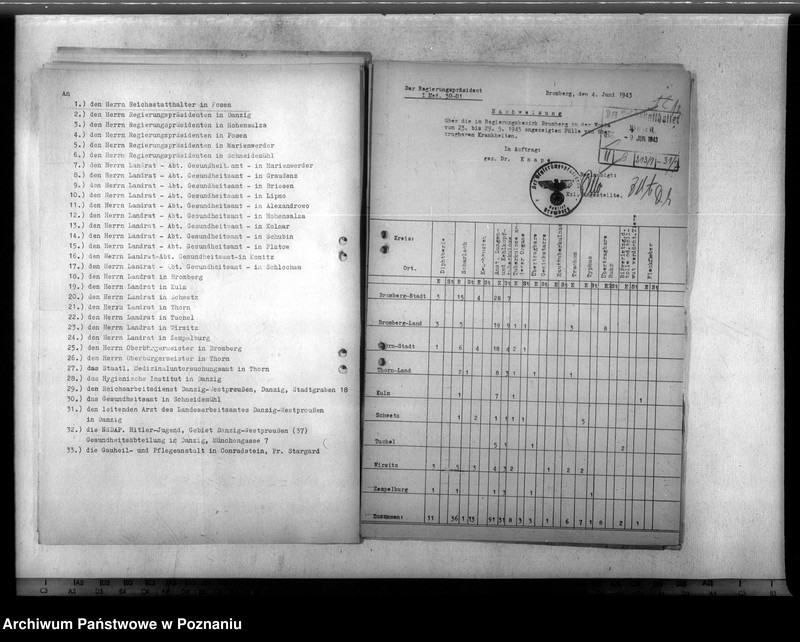 An
1.) den Herrn Reichsstatthalter in Posen
2.) den Herrn Regierungspräsidenten in Danzig
3.) den Herrn Regierungspräsidenten in Hohensalza
4.) den Herrn Regierungspräsidenten in Posen
5.) den Herrn Regierungspräsidenten in Marienwerder
6.) den Herrn Regierungspräsidenten in Schneidemühl
7.) dem Herrn Landrat - Abt. Gesundheitsamt - in Marienwerder
8.) den Herrn Landrat - Abt. Gesundheitsamt - in Graudenz
9.) den Herrn Landrat - Abt. Gesundheitsamt - in Briesen
10.) den Herrn Landrat - Abt. Gesundheitsamt - in Lipno
11.) den Herrn Landrat - Abt. Gesundheitsamt - in Alexandrowo
12.) den Herrn Landrat - Abt. Gesundheitsamt - in Hohensalza
13.) den Herrn Landrat - Abt. Gesundheitsamt - in Kolmar
14.) den Herrn Landrat - Abt. Gesundheitsamt - in Schubin
15.) den Herrn Landrat - Abt. Gesundheitsamt - in Flatow
16.) den Herrn Landrat-Abt. Gesundheitsamt-in Konitz
17.) den Herrn Landrat - Abt. Gesundheitsamt - in Schlochau
18.) den Herrn Landrat in Bromberg
19.) den Herrn Landrat in Kulm
20.) den Herrn Landrat in Schwetz
21.) den Herrn Landrat in Thorn
22.) den Herrn Landrat in Tuchel
23.) den Herrn Landrat in Wirsitz
24.) den Herrn Landrat in Zempelburg
25.) den Herrn Oberbürgermeister in Bromberg
26.) den Herrn Oberbürgermeister in Thorn
27.) das Staatl. Medizinaluntersuchungsamt in Thorn
28.) das Hygienische Institut in Danzig
29.) den Reichsarbeitsdienst Danzig-Westpreußen, Danzig, Stadtgraben 18
30.) das Gesundheitsamt in Schneidemühl
31.) den leitenden Arzt des Landesarbeitsamtes Danzig-Westpreußen
in Danzig
32.) die NSDAP. Hitler-Jugend, Gebiet Danzig-Westpreußen (37)
Gesundheitsabteilung in Danzig, Münchengasse 7
33.) die Gauheil- und Pflegeanstalt in Conradstein, Pr. Stargard
Der Regierungspräsident
I Med. 50-01
Bromberg, den 4. Juni 1943
Nachweisung
über die im Regierungsbezirk Bromberg in der Woche
vom 23. bis 29. 5. 1943 angezeigten Fälle von
tragbaren Krankheiten.
In Auftrag:
gez. Dr. Knape
- 9. JUN. 1943
Kreis:
Ort.
Diphtherie
Scharlach
Keuchhusten
Übertragbare
Trachom
Typhus
Übertragbare Ruhr
Fleckfieber
Bromberg-Stadt 3 15 4 28 7
Bromberg-Land 3 5 19 9 1 1 3 8
Thorn-Stadt 1 6 4 18 4 2 1
Thorn-Land 2 1 8 3 1 1 1
Kulm 1 7 1 1
Schwetz 1 2 1 1 1 1 5
Tuchel 5 1 1 2
Wirsitz 3 5 3 4 3 2 1 2 2
Zempelburg 1 1 1 3 1 1
Zusammen: 11 36 1 13 91 31 8 3 3 1 6 7 1 8 2 1
Archiwum Państwowe w Poznaniu